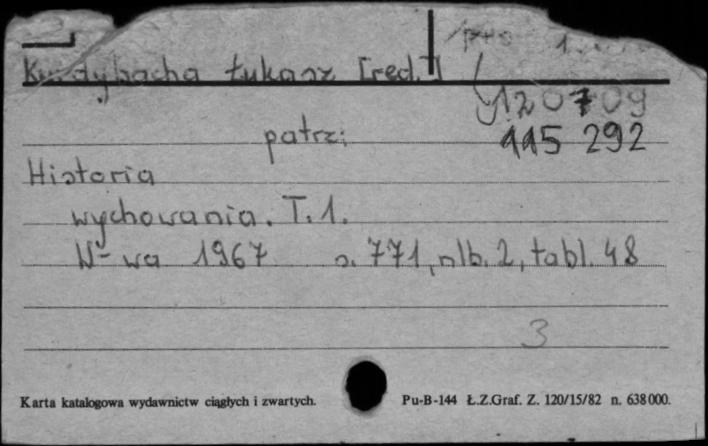 Kurdybacha Łukasz [red.]
120709
patrz: 115 292
Historia
wychowania. T.1.
W-wa 1967 s. 771, nlb. 2, tabl. 48
3
Karta katalogowa wydawnictw ciągłych i zwartych. Pu-B-144 Ł.Z.Graf. Z. 120/15/82 n. 638000.